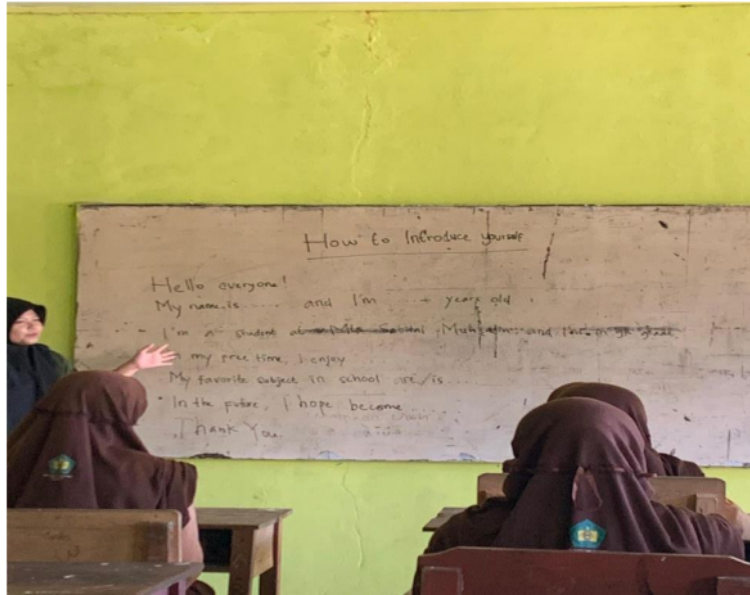 How to Introduce yourself
Hello everyone!
My name is ...... and I'm ...... years old.
I'm a student at and I'm in grade
my free time, I enjoy ...
My favorite subject in school is ...
In the future, I hope become ...
Thank You.